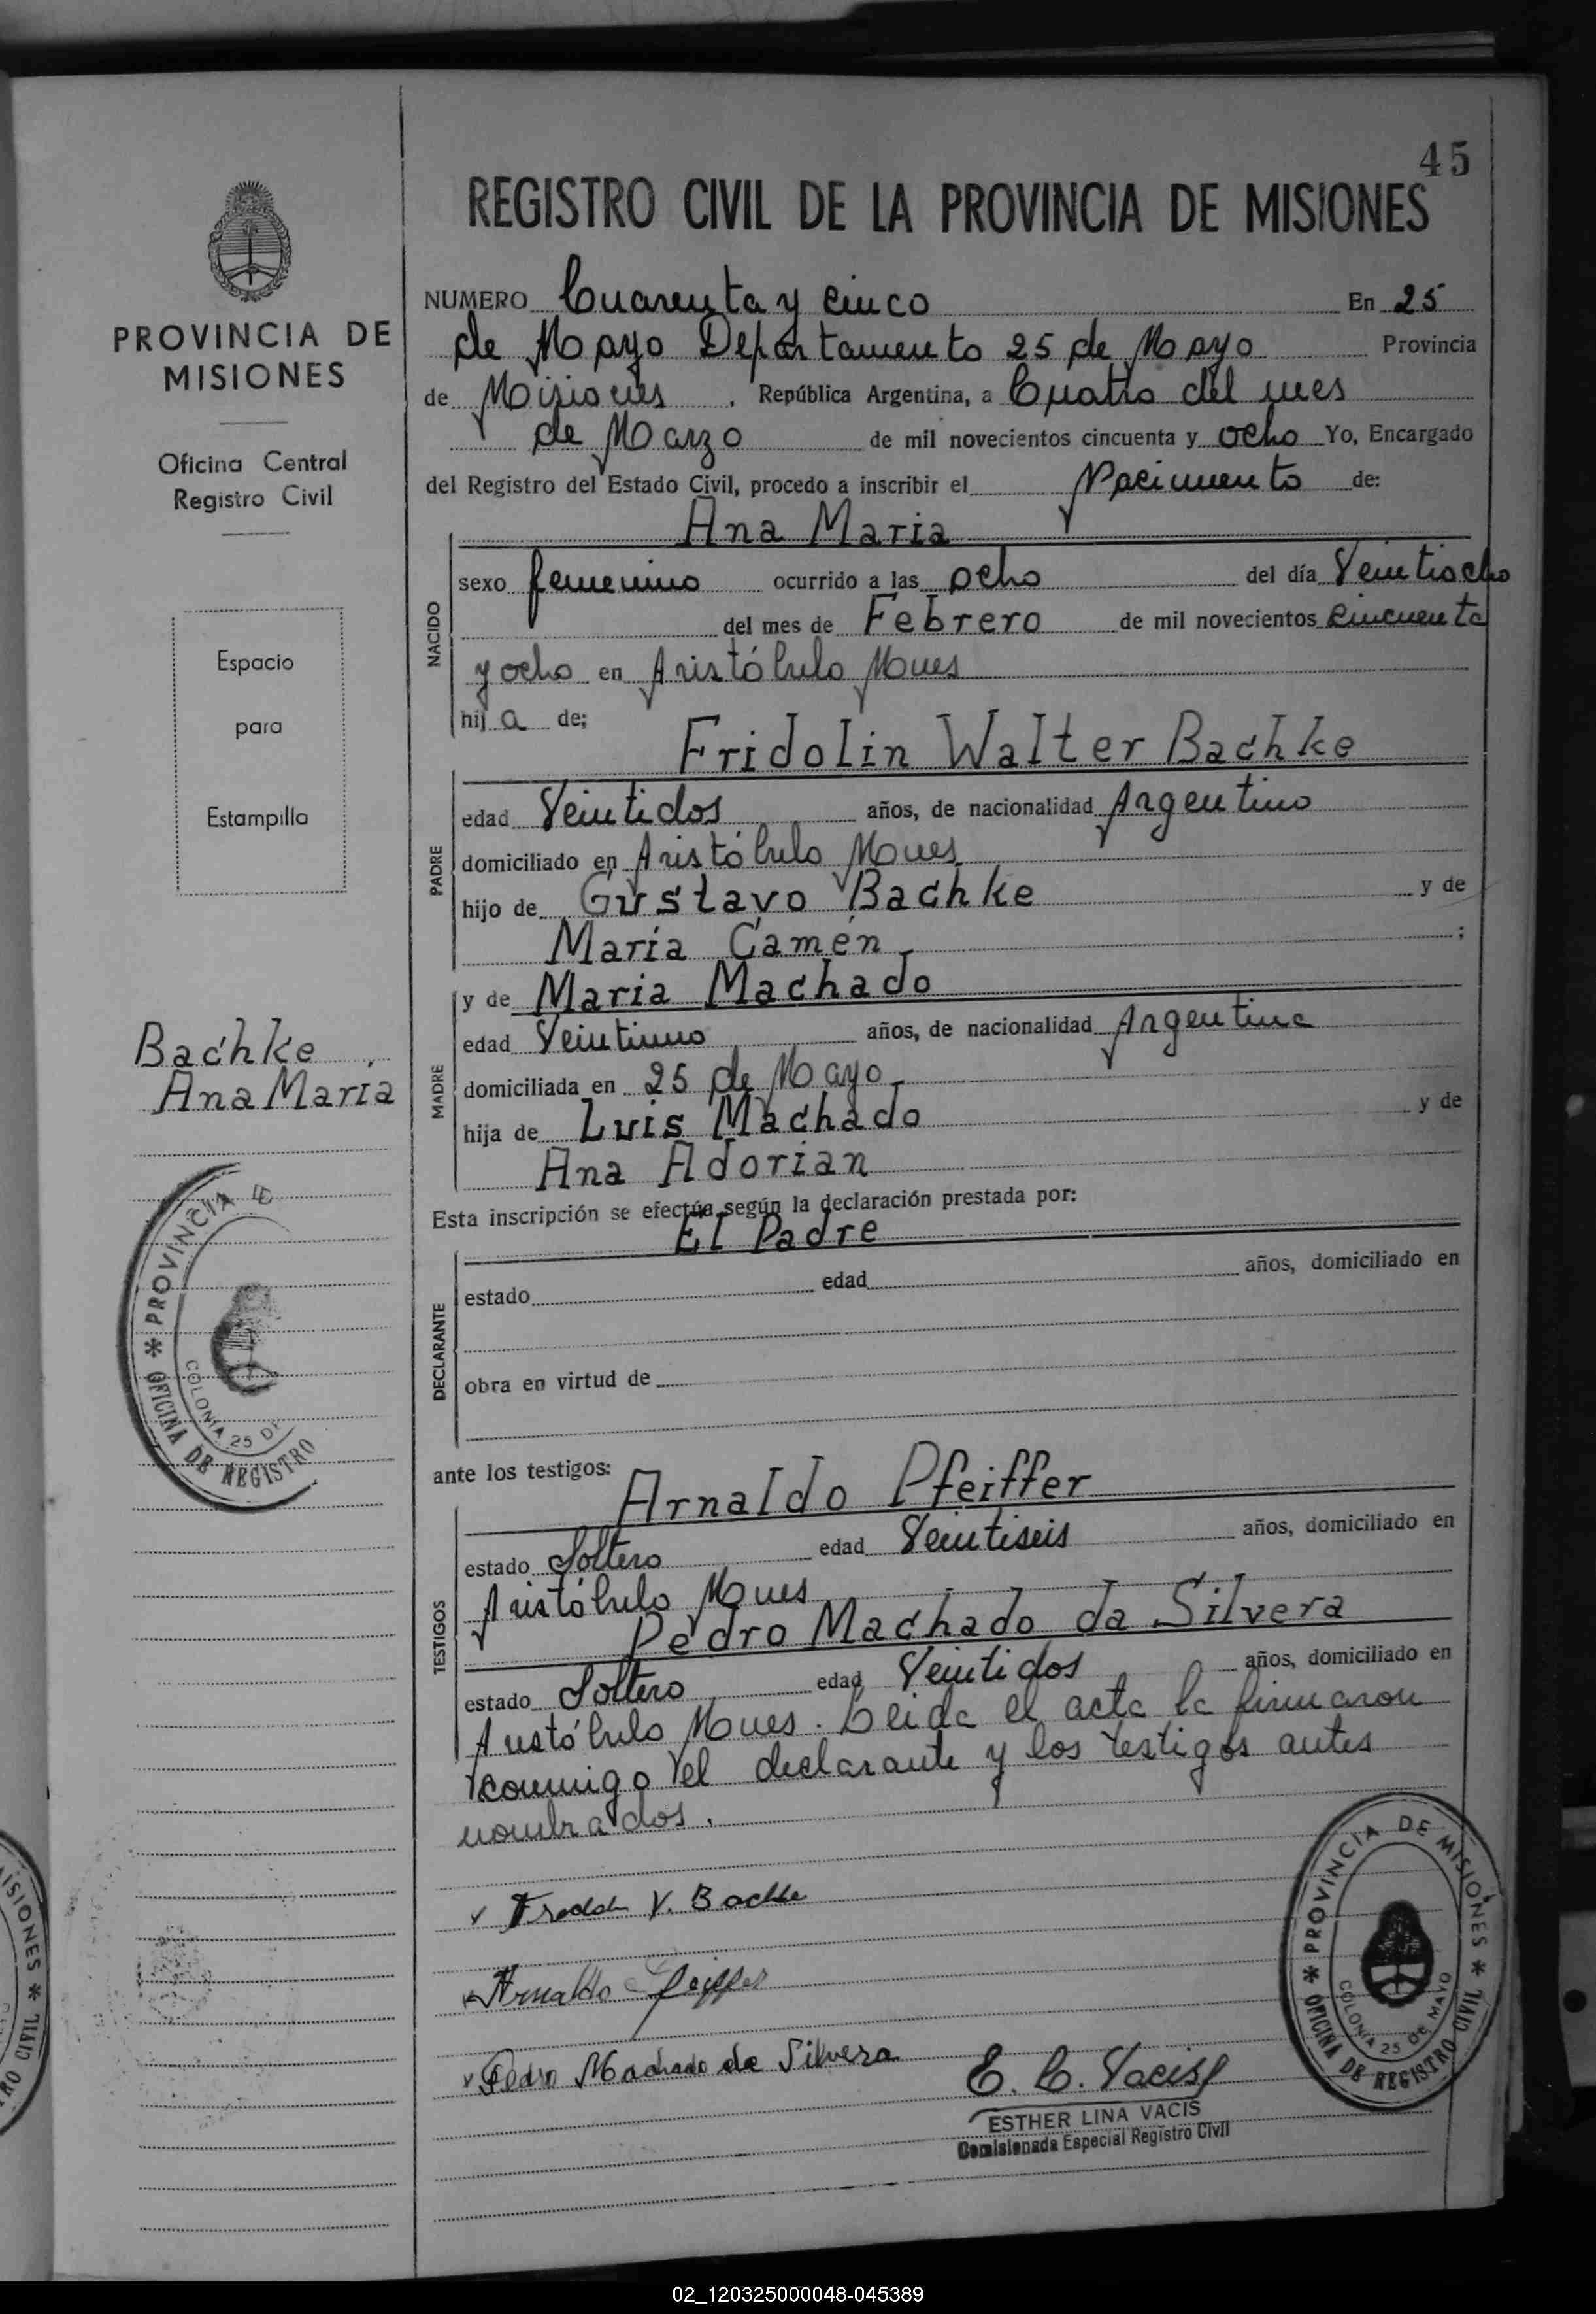 45
REGISTRO CIVIL DE LA PROVINCIA DE MISIONES
PROVINCIA DE
MISIONES
Oficina Central
Registro Civil
Espacio
para
Estampilla
Bachke
Ana María
PROVINCIA DE
COLONIA 25 DE
OFICINA DE REGISTRO
NUMERO Cuarenta y cinco En 25
de Mayo Departamento 25 de Mayo Provincia
de Misiones, República Argentina, a Cuatro del mes
de Marzo de mil novecientos cincuenta y ocho Yo, Encargado
del Registro del Estado Civil, procedo a inscribir el Nacimiento de:
Ana Maria
NACIDO
sexo femenino ocurrido a las ocho del día Veintiocho
del mes de Febrero de mil novecientos cincuenta
y ocho en Aristóbulo
hija de:
Fridolin Walter Bachke
PADRE
edad Veintidos años, de nacionalidad Argentino
domiciliado en Aristóbulo
hijo de Gustavo Bachke y de
María Camén ;
y de Maria Machado
MADRE
edad Veintiuno años, de nacionalidad Argentina
domiciliada en 25 de Mayo
hija de Luis Machado y de
Ana Adorian
Esta inscripción se efectúa según la declaración prestada por:
El Padre
DECLARANTE
estado edad años, domiciliado en
obra en virtud de
ante los testigos:
Arnaldo Pfeiffer
TESTIGOS
estado Soltero edad Veintiseis años, domiciliado en
Aristóbulo
Pedro Machado da Silvera
estado Soltero edad Veintidos años, domiciliado en
Aristóbulo . Leida el acta la firmaron
conmigo el declarante y los testigos antes
nombrados.
V. Bachke
Arnaldo Pfeiffer
Pedro Machado da Silvera
E. L. Vacis
ESTHER LINA VACIS
Comisionada Especial Registro Civil
PROVINCIA DE MISIONES
COLONIA 25 DE MAYO
OFICINA DE REGISTRO CIVIL
02_120325000048-045389